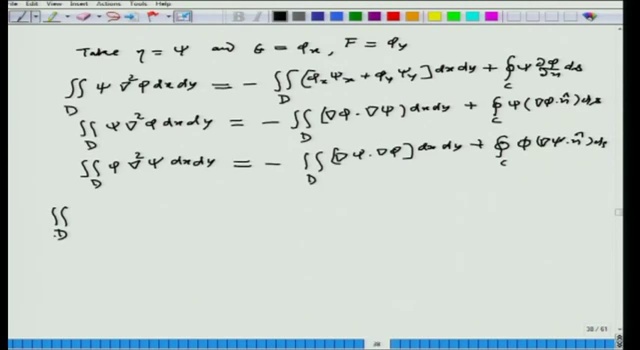 File Edit View Insert Actions Tools Help
Take η = Ψ and G = φₓ, F = φᵧ
∬_D Ψ ∇²φ dx dy = − ∬_D [φₓ Ψₓ + φᵧ Ψᵧ] dx dy + ∮_C Ψ ∂φ/∂n ds
∬_D Ψ ∇²φ dx dy = − ∬_D (∇φ · ∇Ψ) dx dy + ∮_C Ψ (∇φ · n̂) ds
∬_D φ ∇²Ψ dx dy = − ∬_D [∇φ · ∇φ] dx dy + ∮_C φ (∇Ψ · n̂) ds
∬_D
38 / 61
38